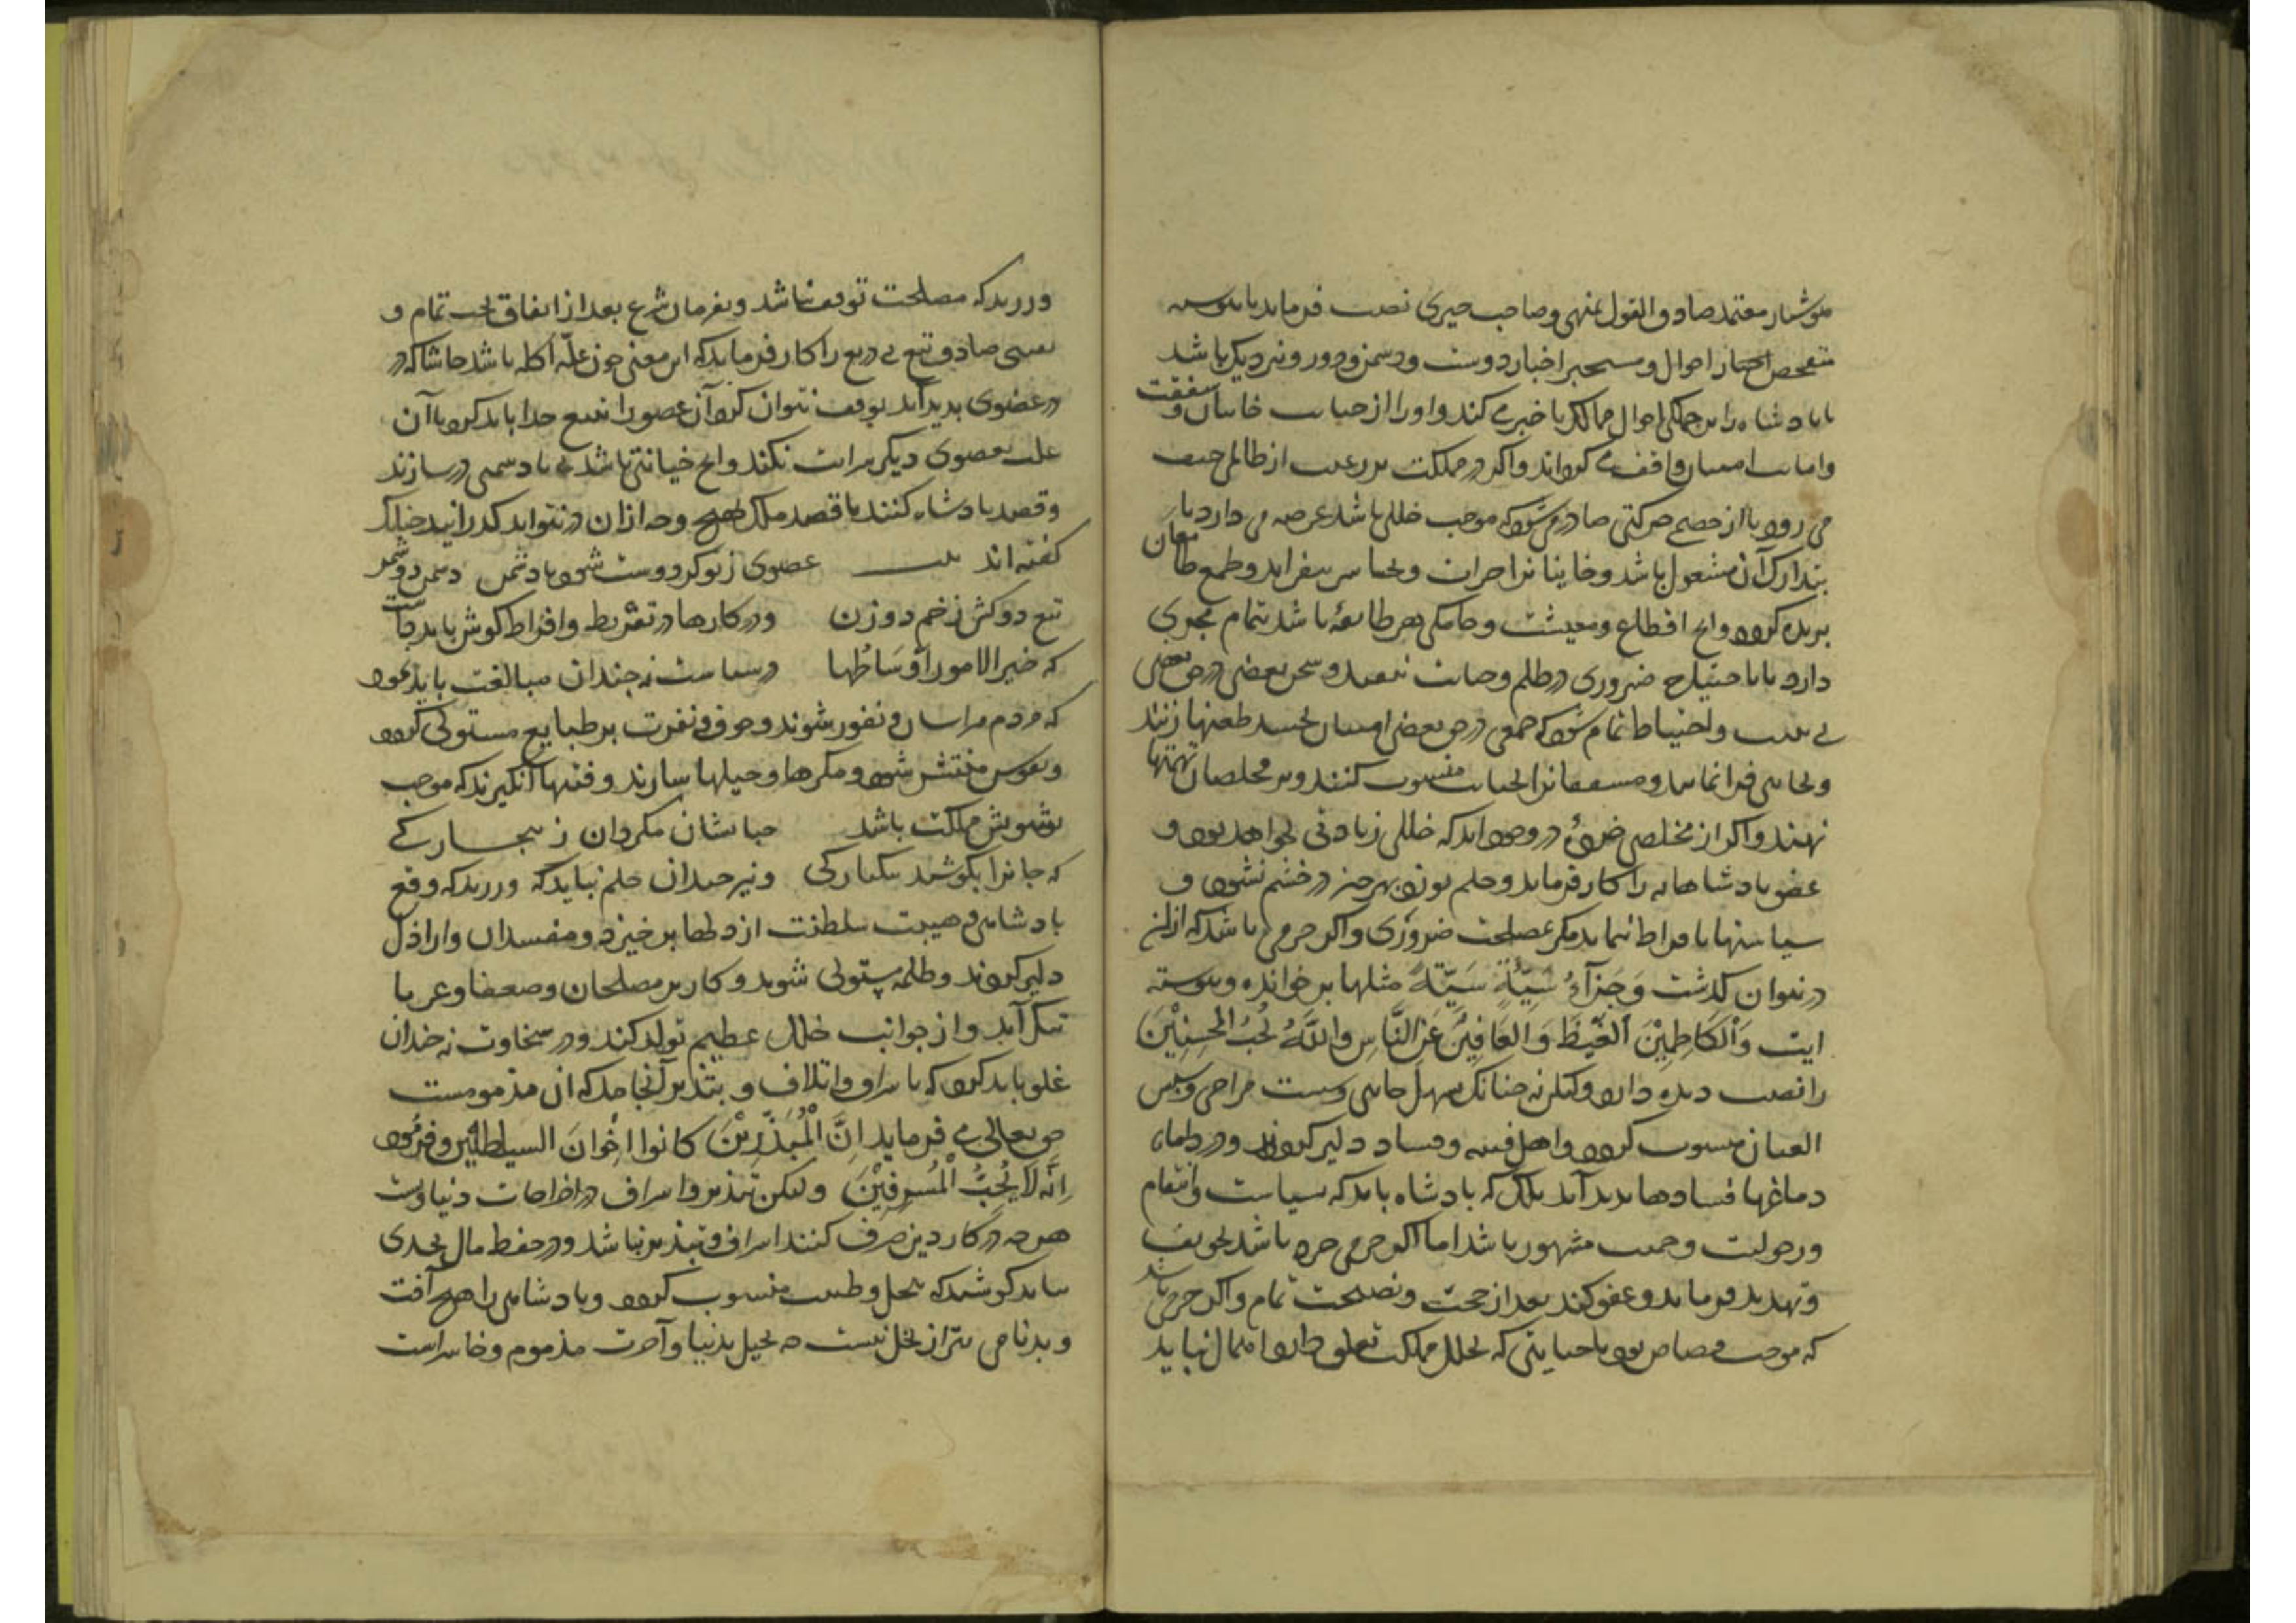 هوشیار معتمد صادق القول منهی و صاحب خبری نصب فرماید تا پیوسته
متفحص اخبار احوال و مستخبر اخبار دوست و دشمن و دور و نزدیک باشد
تا پادشاه را بر جملگی احوال ممالک با خبر می کند و او را از خیانت خاینان و شفقت
و امانت امینان واقف می گرداند و اگر در مملکت بر رعیت از ظالمی حیف
می رود یا از خصم حرکتی صادر می شود که موجب خللی باشد عرضه می دارد تا
بتدارک آن مشغول باشد و خاینانرا جرات و تجاسر نیفزاید و طمع طامعان
بریده گردد و انج اقطاع و معیشت و جامگی هر طایفه باشد بتمام مجری
دارد تا باحتیاج ضروری در ظلم و خیانت نیفتند و سخن بعضی در حق بعضی
بی بینت و احتیاط تمام نشنود که جمعی در حق بعضی امینان بحسد طعنها زنند
و بخاینی فرا نمایند و مشفقانرا بخیانت منسوب کنند و بر مخلصان تهمتها
نهند و اگر از مخلصی خرده در وجود اید که خللی زیادتی نخواهد بود و
عفو پادشاهانه را کار فرماید و حلم بورزد بهر چیز در خشم نشود و
سیاستها بافراط ننماید مگر بمصلحت ضروری و اگر جرمی باشد که از آن
در نتوان گذشت وَجَزَآءُ سَیِّئَةٍ سَیِّئَةٌ مثلها بر خوانده و پیوسته
ایت وَالْکَاظِمِیْنَ الْغَیْظَ وَالعَافِیْنَ عَنِ النَّاسِ وَاللّٰهُ یُحِبُّ المُحْسِنِیْنَ
را نصب دیده دارد ولیکن نه چنانک بسهل جانبی و سست مزاجی و
العنان منسوب گردد و اهل فتنه و فساد دلیر گردند و در
دماغها فسادها بدید آید بلک که پادشاه باید که بسیاست و انتقام
و رجولیت و حمیت مشهور باشد اما اگر جرمی خرد باشد بتخویف
و تهدید فرماید و عفو کند بعد از حجت و نصیحت تمام و اگر جرمی باشد
که موجب قصاص بود یا خیانتی که بخلل مملکت تعلق دارد اهمال نباید
ورزید که مصلحت توقف نباشد و بفرمان شرع بعد از اتفاق بحث تمام و
تفحص صادق تیغ بی دریغ را کار فرماید که این معنی چون علّة اکله باشد حاشا که در
در عضوی بدید آید توقف نتوان کرد آن عضو را بتیغ جدا باید کرد تا آن
علت بعضوی دیگر سرایت نکند و انج خیانتی باشد که با دشمنی در سازند
و قصد پادشاه کنند یا قصد ملک بهیچ وجه از ان در نتواند گذرانید چنانک
گفته اند بیت عضوی ز تو گر دوست شود با دشمن دشمن دو شمر
تیغ دو کش زخم دو زن و در کارها در تفریط و افراط کوش باید داشت
که خیر الامور اَوسَاطُها در سیاست نه چندان مبالغت باید نمود
که مردم هراسان و نفور شوند و خوف و نفرت بر طبایع مستولی گردد
و نفوس منتشر شود و مکرها و حیلها سازند و فتنها انگیزند که موجب
تشویش مملکت باشد چنانشان مگردان ز بیچارگی
که جانرا بکوشند یکبارگی و نیز چندان حلم نباید که ورزید که وقع
پادشاهی و هیبت سلطنت از دلها برخیزد و مفسدان و اراذل
دلیر گردند و ظلمه مستولی شوند و کار بر مصلحان و ضعفا و غربا
تنگ آید و از جوانب خلل عظیم تولد کند و در سخاوت نه چندان
غلو باید کرد که باسراف و اتلاف و بتذیر آنجامد که ان مذمومست
حق تعالی می فرماید اِنَّ الْمُبَذِّرِیْنَ کانوا اِخْوانَ الشیاطین و فرموده
اِنَّه لَا یُحِبُّ الْمُسْرِفِیْنَ ولیکن تبذیر و اسراف در اخراجات دنیاوست
هرچه در کار دین صرف کنند اسراف و تبذیر نباشد و در حفظ مال بحدی
نباید کوشید که ببخل و منسوب گردد و پادشاهی را هیچ آفت
و بدنامی بتر از بخل نیست چه بخیل بدنیا و آخرت مذموم و خاسراست